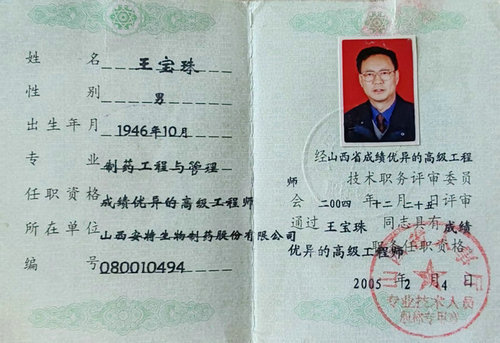 姓名 王宝珠
性别 男
出生年月 1946年10月
专业 制药工程与管理
任职资格 成绩优异的高级工程师
所在单位 山西安特生物制药股份有限公司
编号 080010494
经山西省成绩优异的高级工程
师 技术职务评审委员
会 二00四年十二月二十五日评审
通过 王宝珠 同志具有 成绩
优异的高级工程师 职务任职资格
2005年2月4日
专业技术人员
职称专用章